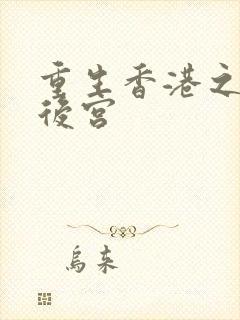 重生香港之
後宮
烏來